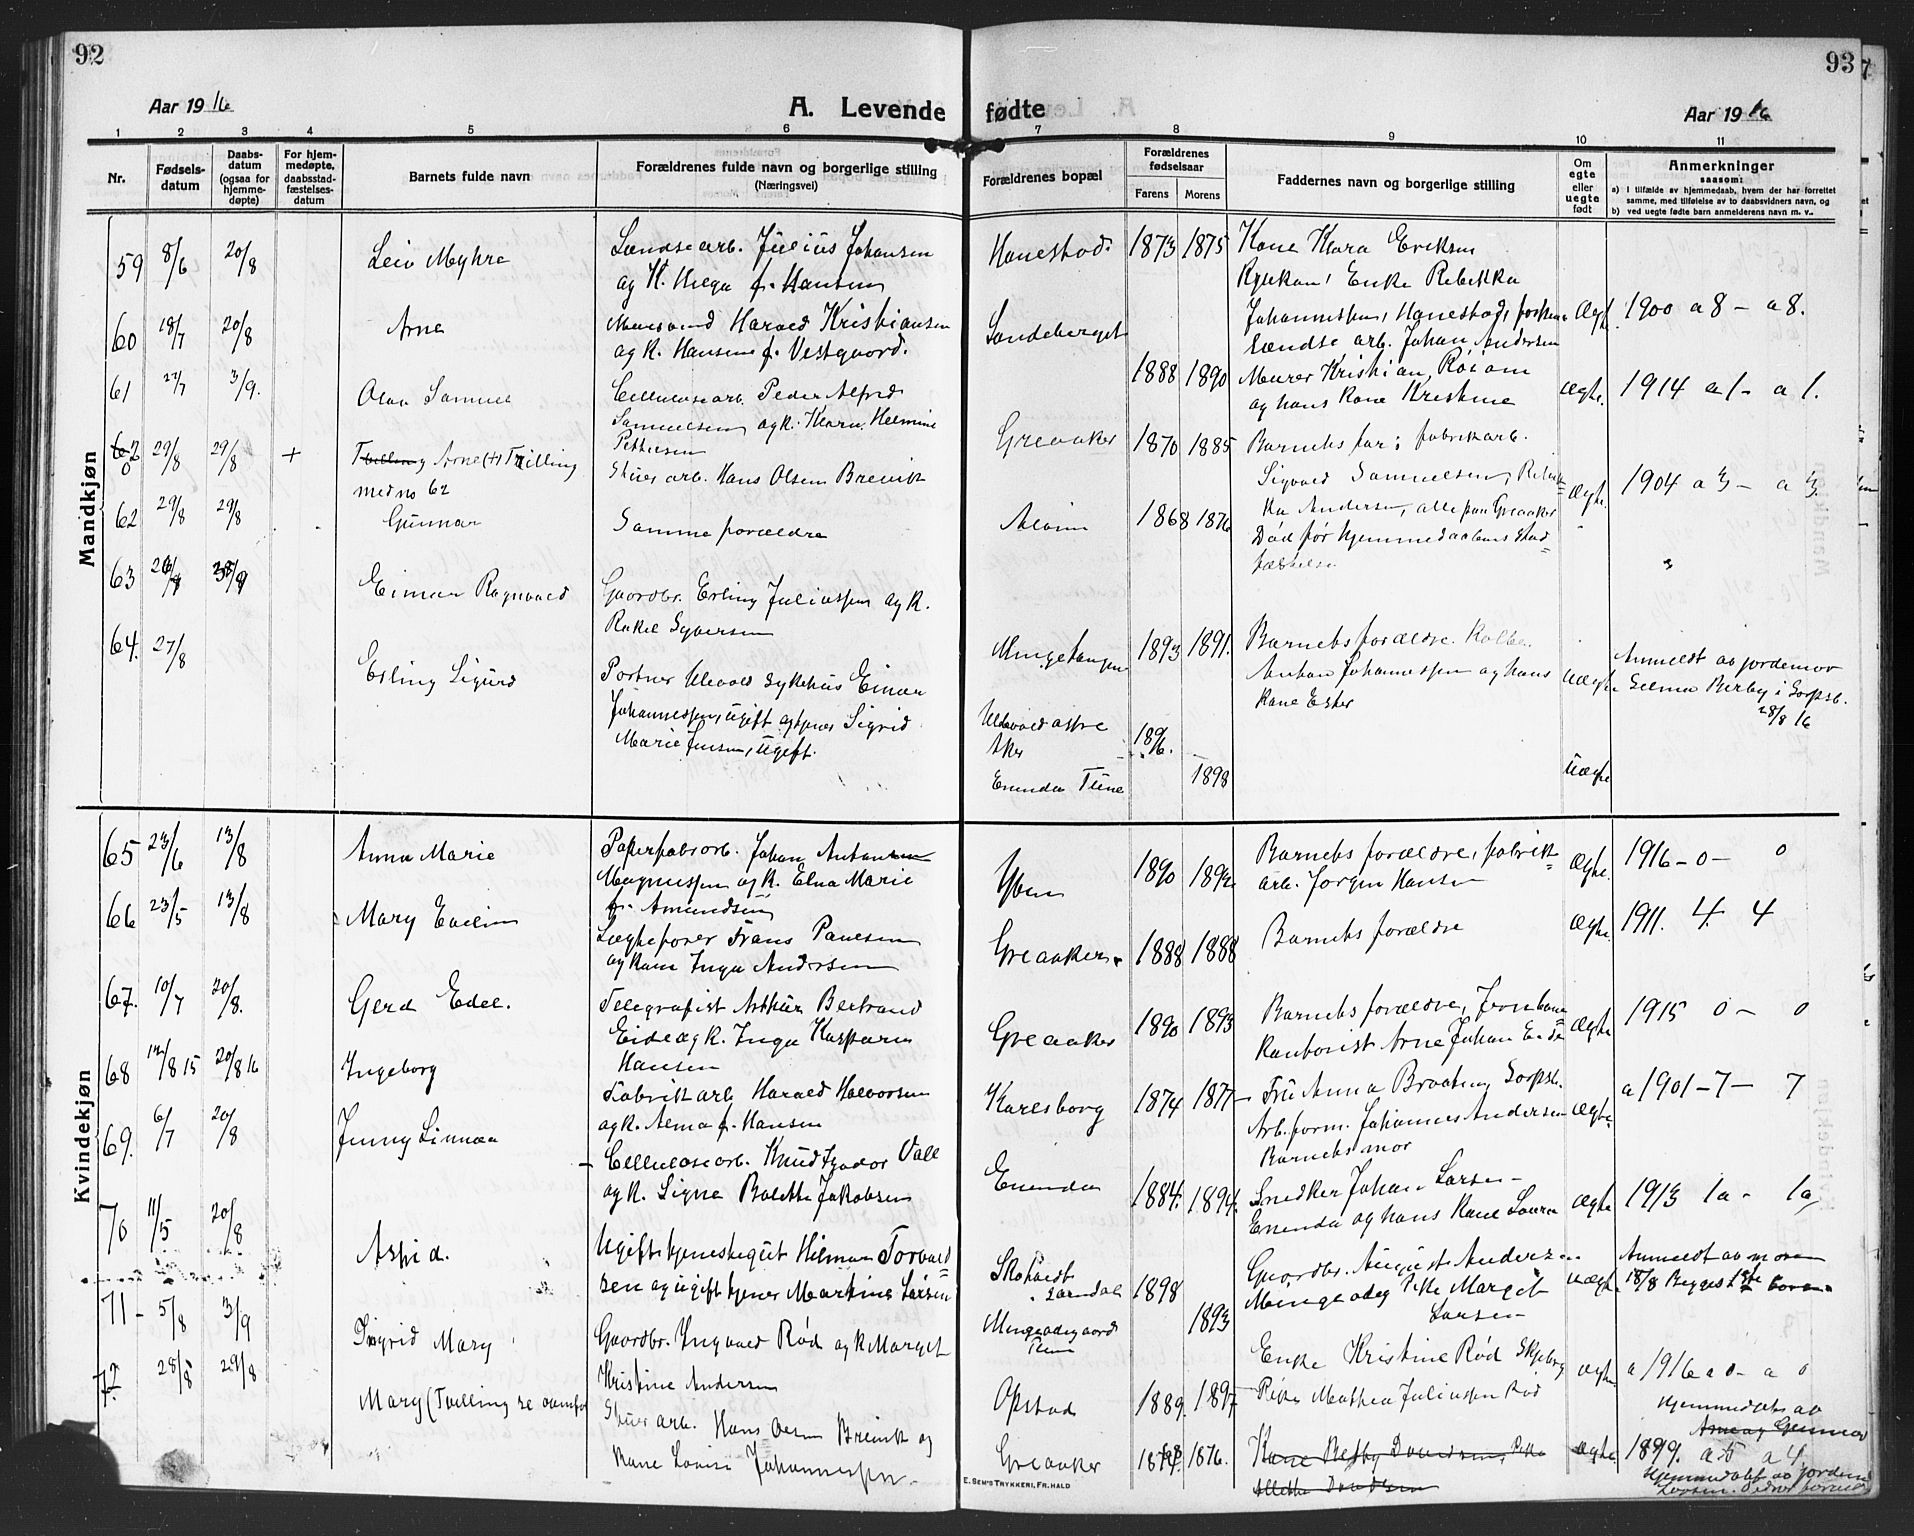 92
Aar 1916
A. Levende
1 2 3 4 5 6
Nr.
Fødsels-
datum
Daabs-
datum
(ogsaa for
hjemme-
døpte)
For hjem-
medøpte,
daabsstad-
fæstelses-
datum
Barnets fulde navn
Forældrenes fulde navn og borgerlige stilling
(Næringsvei)
Mandkjøn
59 8/6 20/8 Leiv Myhre
Lændsearb. Julius Johansen
og K. Helga f. Hansen
60 18/7 20/8 Arne
Harald Kristiansen
og K. Hansine f. Vestgaard.
61 3/9. Olav Samuel
Cellulosearb. Peder Alfred
Samuelsen og K. Karn. Helmine
Pettersen
29/8 29/8 + Arne (+) Tvilling
med no 62
Stuer arb. Hans Olsen Brevik
62 29/8 29/8 Gunnar
Samme forældre
63 Einar Ragnvald
Gaardbr. Erling Juliussen og K.
Rakel Syversen
64. 27/8 Erling Sigurd
Portner Ulevold Sykehus Einar
Johannessen, ugift og tjener Sigrid
Marie Jensen, ugift.
Kvindekjøn
65 23/6 13/8 Anna Marie
Papirfabarb. Johan Antonsen
Magnussen og K. Elna Marie
f. Amundsen
66 23/5 13/8 Mary Evelin
Frans Paulsen
og kone Inga Andersen
67. 10/7 20/8. Gerd Edel.
Telegrafist Arthur Bertrand
Eide og K. Inga Kasparin
Hansen
68 12/8 15 20/8 16 Ingeborg
Fabrikarb Harald Halvorsen
og K. Alma f. Hansen
69. 6/7 20/8 Jenny Linnea
Cellulosearb. Knud Teodor Vall
og K. Signe Bolette Jakobsen
70 11/5 20/8 Astrid.
Ugift tjenestegut Hilmar Torvald
sen og ugift tjener Martine Larsen
71 5/8 3/9 Ingrid Mary
Gaardbr. Ingvald Rød og K Marget
Kristine Andersen
72 28/8 29/8 Mary (Tvilling se ovenfor
Stuer arb. Hans Olsen Brevik og
Kone Lovise Johannessen.
93
fødte
Aar 1916
7 8 9 10 11
Forældrenes bopæl
Forældrenes
fødselsaar
Farens
Morens
Faddernes navn og borgerlige stilling
Om
egte
eller
uegte
født
Anmerkninger
saasom:
a) I tilfælde av hjemmedaab, hvem der har forrettet
samme, med tilføielse av to daabsvidners navn, og
b) ved uegte fødte barn anmelderens navn m. v..
Hanestad. 1873 1875 Kone Klara Eriksen
Rjukan, Enke Rebekka
Johannessen, Hanestad,
Lændse arb. Johan Andersen
Ægte 1900 a 8 - a 8.
Sandeberget 1888 1890 Murer Kristian Røiom
og hans Kone Kristine
Ægte. 1914 a 1 - a 1.
Greaaker 1870 1885 Barnets far; fabrikarb.
Sigvald Samuelsen,
Andersen, alle paa Greaaker
Ægte 1904 a 3 - a 3.
Alvim 1868 1876
Død før hjemmedaabens Stad
fæstelse
Mingetangen 1893 1891. Barnets forældre.
Anton Johannessen og hans
Kone Ester
Uægte Anmeldt av jordemor
Selma Berby i Sarpsb.
28/8 16
Ullevold
Aker 1896.
Enenda Tune 1898 Uægte
Yven 1890 1892 Barnets forældre, fabrik
arb. Jørgen Hansen
Ægte. 1916 - 0 - 0
Greaaker. 1888 1888 Barnets forældre Ægte. 1911. 4. 4
Greaaker 1890 1893 Barnets forældre, Jernbane
Kontorist Arne Johan Eide
Ægte 1915 0 - 0
Karlsborg 1874 1877 Fru Anna Braaten, Sarpsb.
Arb.form. Johannes Andersen
Barnets mor
Ægte a 1901 - 7 - 7
Enenda 1884. 1894. Snedker Johan Larsen -
Enenda og hans Kone Laura
Ægte 1913 1a - 1a
1898 Gaardbr. August Andersen
Pike Marget
Larsen
Uægte. Anmeldt av moren
18/8 Begges 1ste barn
Mingeødegaard
Tune 1893
Opstad 1889. 1897 Enke Kristine Rød Skjeberg
Pike Mathea Juliussen Rød
Ægte a 1916 a 0 - a 0
Hjemmedøbt av
Greaaker 1876. Kone Betsy Davidsen, Pike
Alette Davidsen
Ægte. 1899. a 5 a 4.
Hjemmedøbt av jordem
E. SEM'S TRYKKERI, FR.HALD